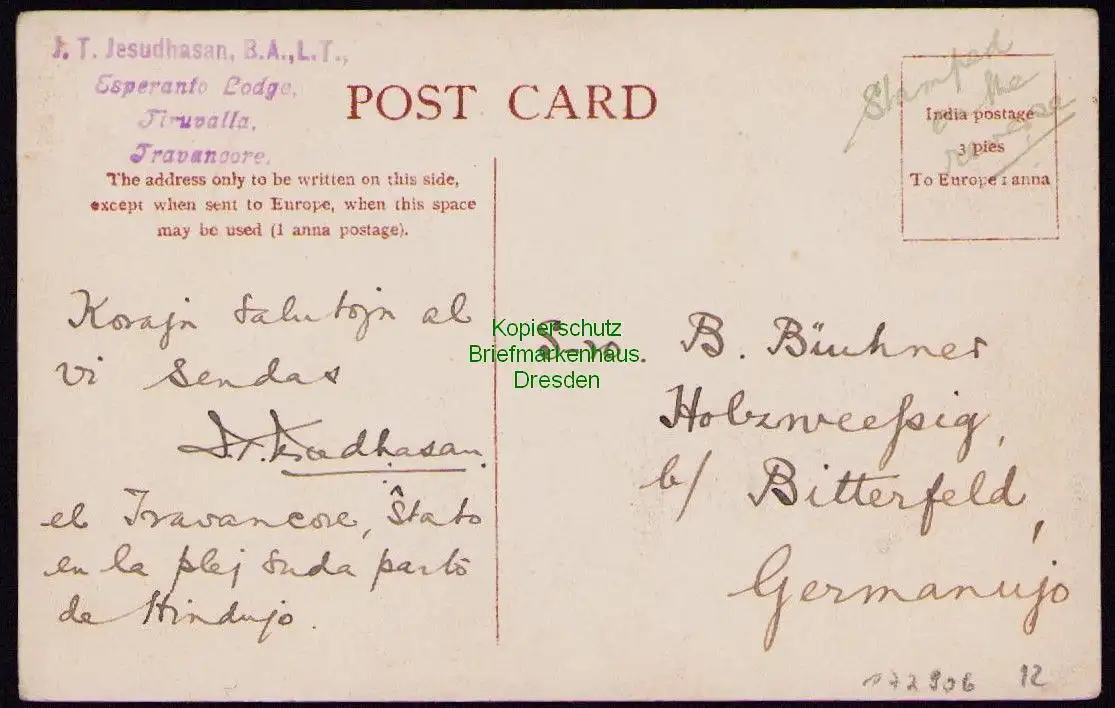 J. T. Jesudhasan, B.A., L.T.,
Esperanto Lodge,
Tiruvalla,
Travancore.
POST CARD
The address only to be written on this side,
except when sent to Europe, when this space
may be used (1 anna postage).
Stamped
on the
reverse
India postage
3 pies
To Europe 1 anna
Korajn salutojn al
vi sendas
J. T. Jesudhasan.
el Travancore, Ŝtato
en la plej suda parto
de Hindujo.
S-ro. B. Büchner
Holzweeßig,
b/ Bitterfeld,
Germanujo
Kopierschutz
Briefmarkenhaus
Dresden
172906 12